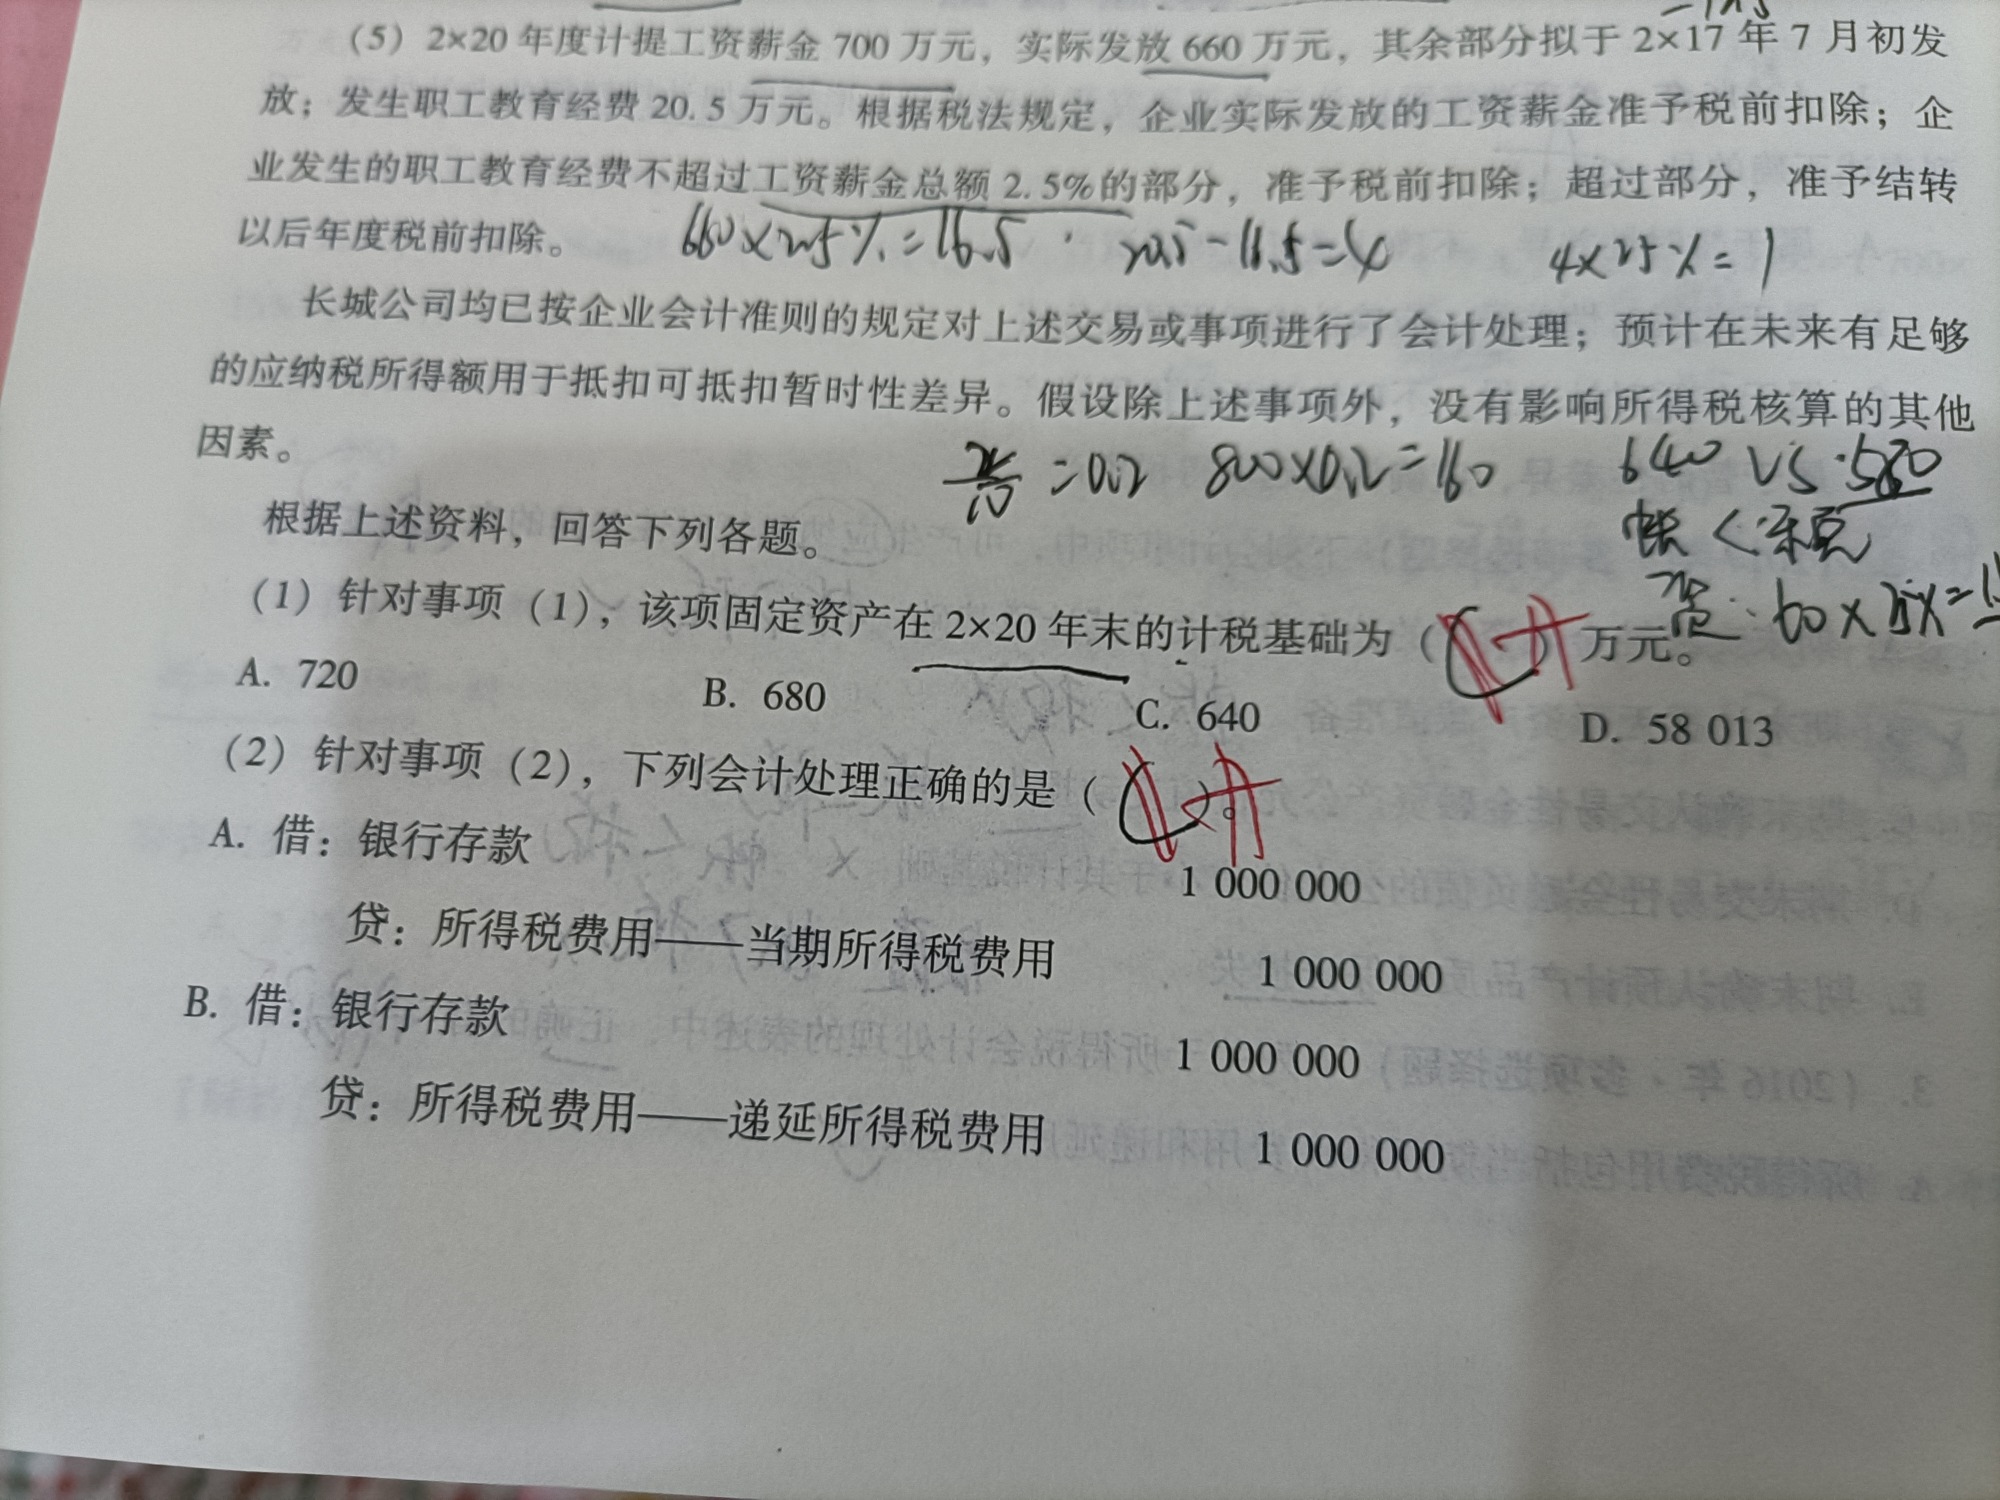 (5) 2×20 年度计提工资薪金 700 万元，实际发放 660 万元，其余部分拟于 2×17 年 7 月初发
放；发生职工教育经费 20.5 万元。根据税法规定，企业实际发放的工资薪金准予税前扣除；企
业发生的职工教育经费不超过工资薪金总额 2.5%的部分，准予税前扣除；超过部分，准予结转
以后年度税前扣除。
660×2.5%=16.5 20.5-16.5=4 4×25%=1
长城公司均已按企业会计准则的规定对上述交易或事项进行了会计处理；预计在未来有足够
的应纳税所得额用于抵扣可抵扣暂时性差异。假设除上述事项外，没有影响所得税核算的其他
因素。
=0.2 800×0.2=160 640 VS 580
根据上述资料，回答下列各题。
(1) 针对事项（1），该项固定资产在 2×20 年末的计税基础为（ ）万元。
A. 720 B. 680 C. 640 D. 58 013
(2) 针对事项（2），下列会计处理正确的是（ ）。
A. 借：银行存款 1 000 000
贷：所得税费用——当期所得税费用 1 000 000
B. 借：银行存款 1 000 000
贷：所得税费用——递延所得税费用 1 000 000